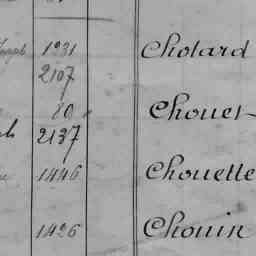 Joseph 1931 Cholard
2107
80 Chouet
2137
1446 Chouette
1426 Chouin